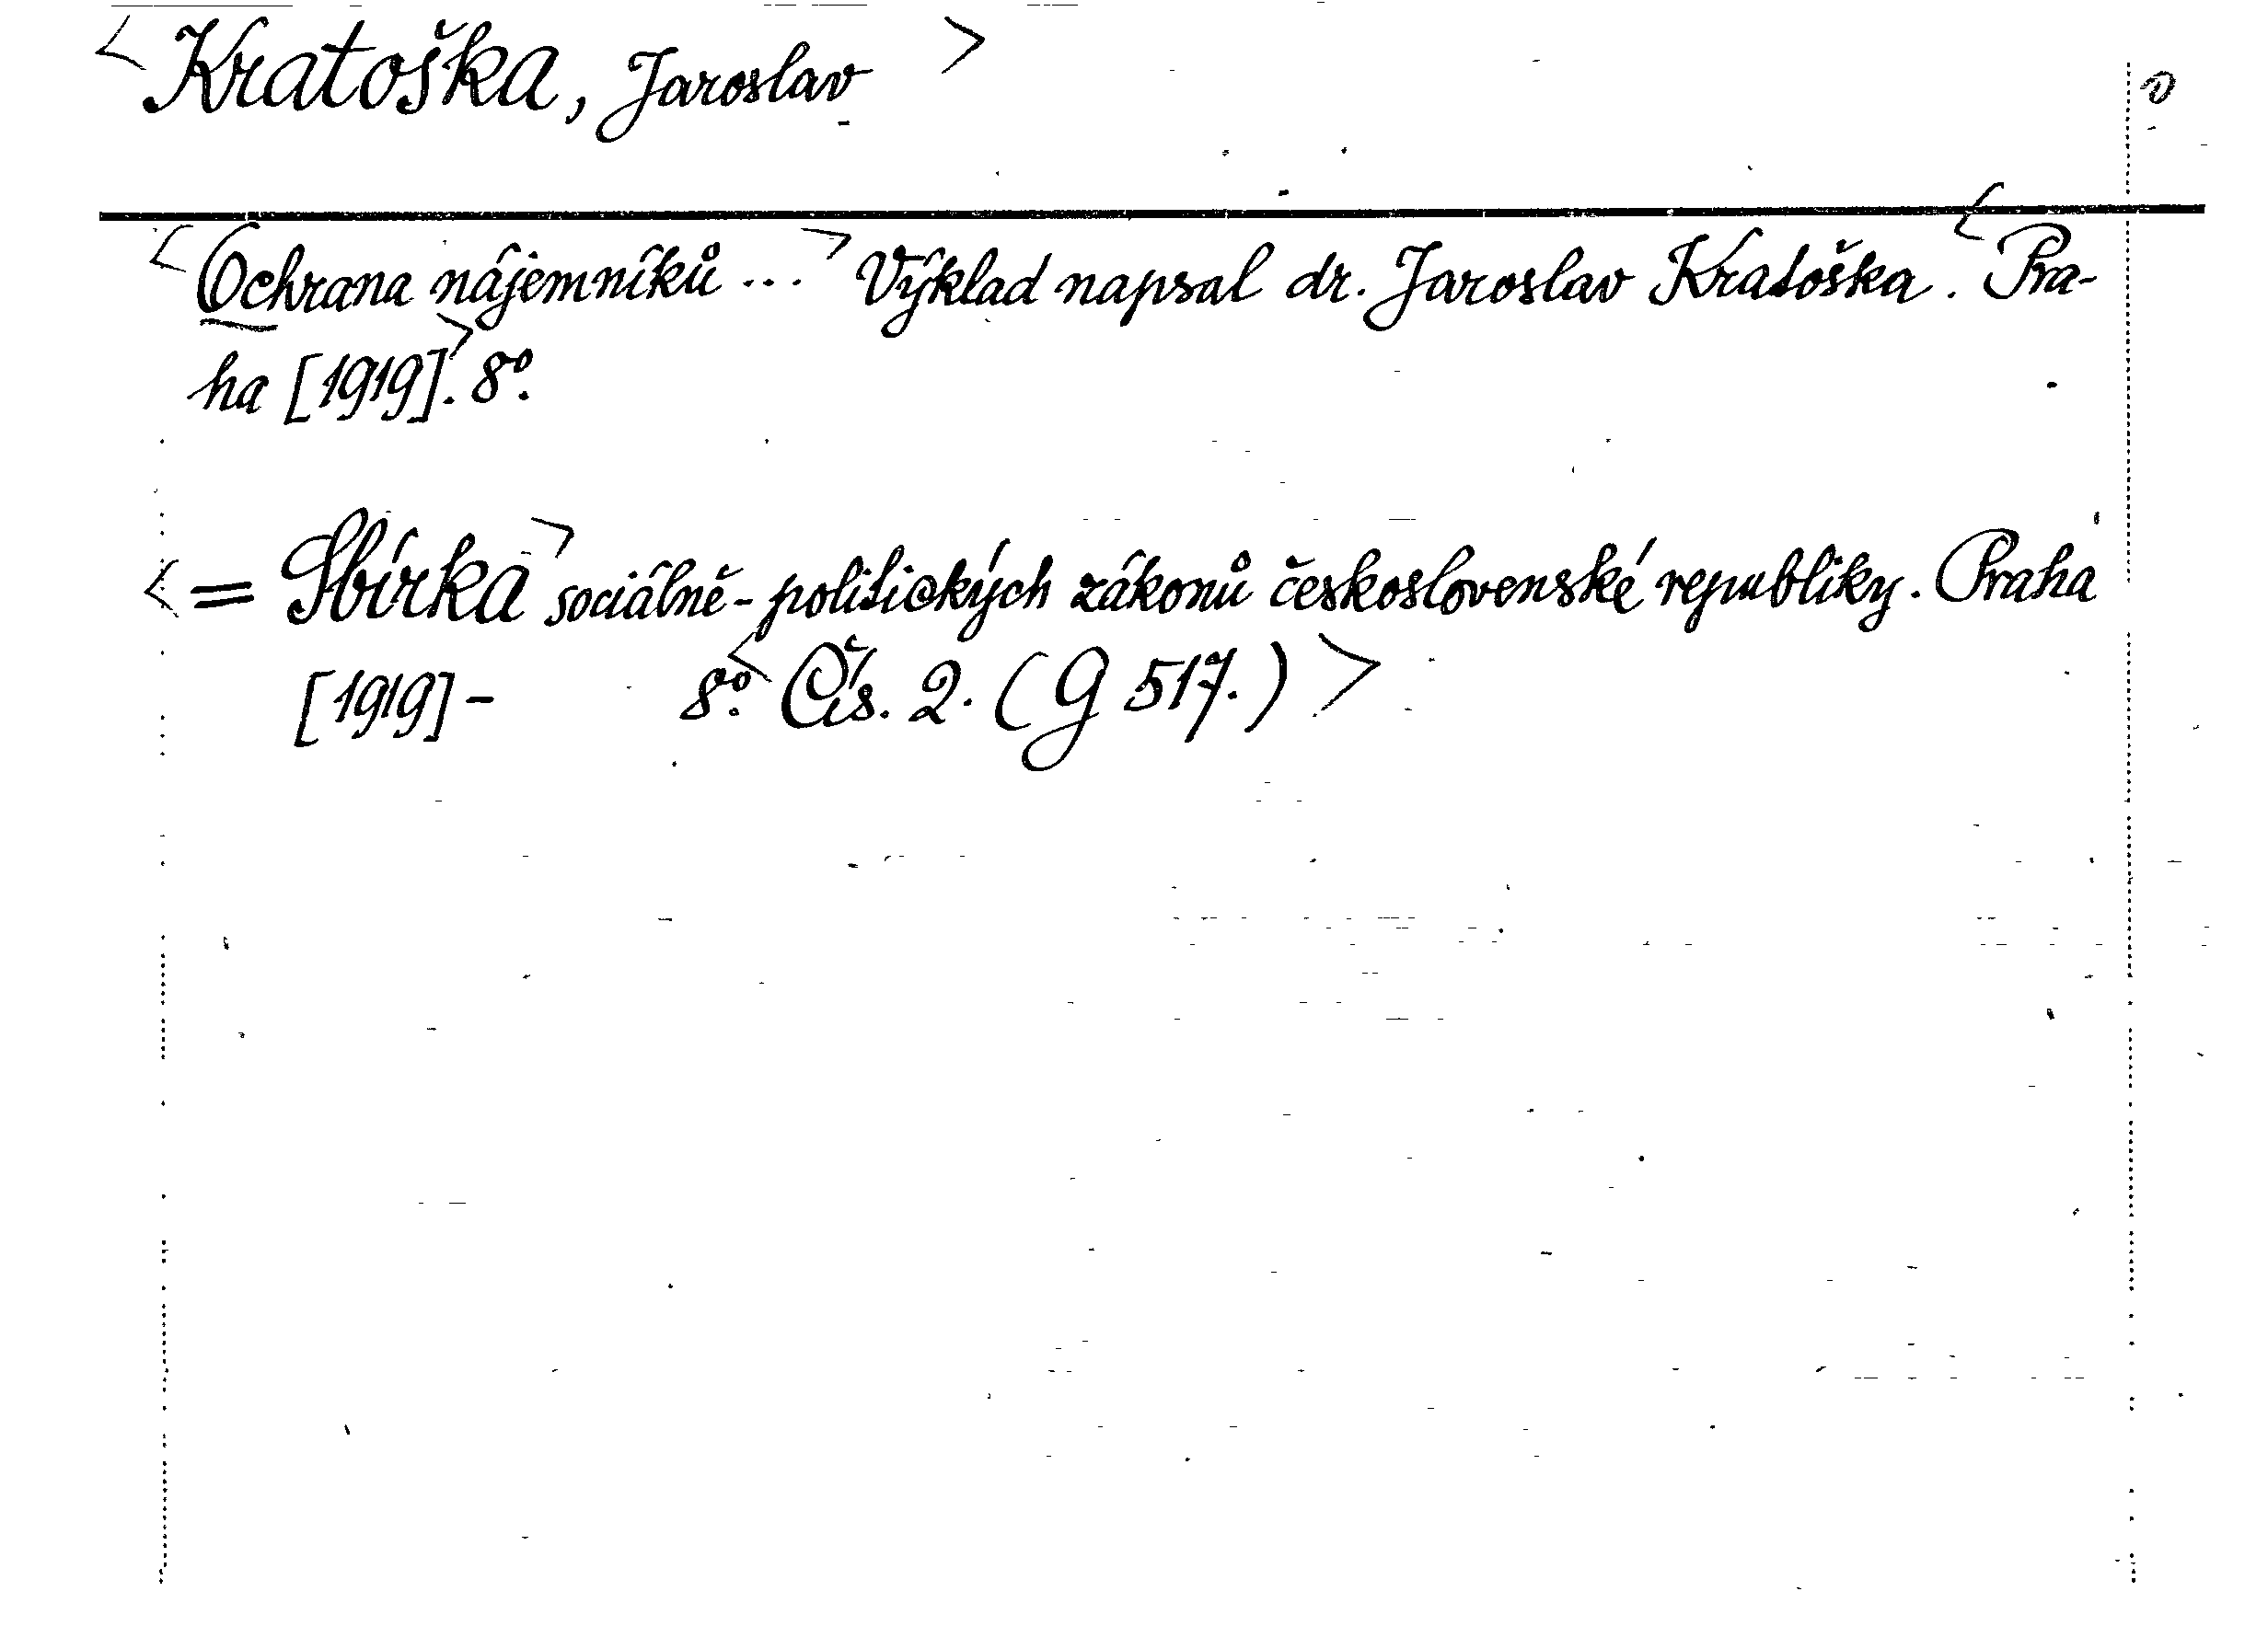 <Kratoška, Jaroslav> o
<Ochrana nájemníků ...> Výklad napsal dr. Jaroslav Kratoška. <Pra-
ha [1919].> 8º.
<= Sbírka> sociálně-politických zákonů československé republiky. Praha
[1919] - 8º. <Čís. 2. (G 517.)>